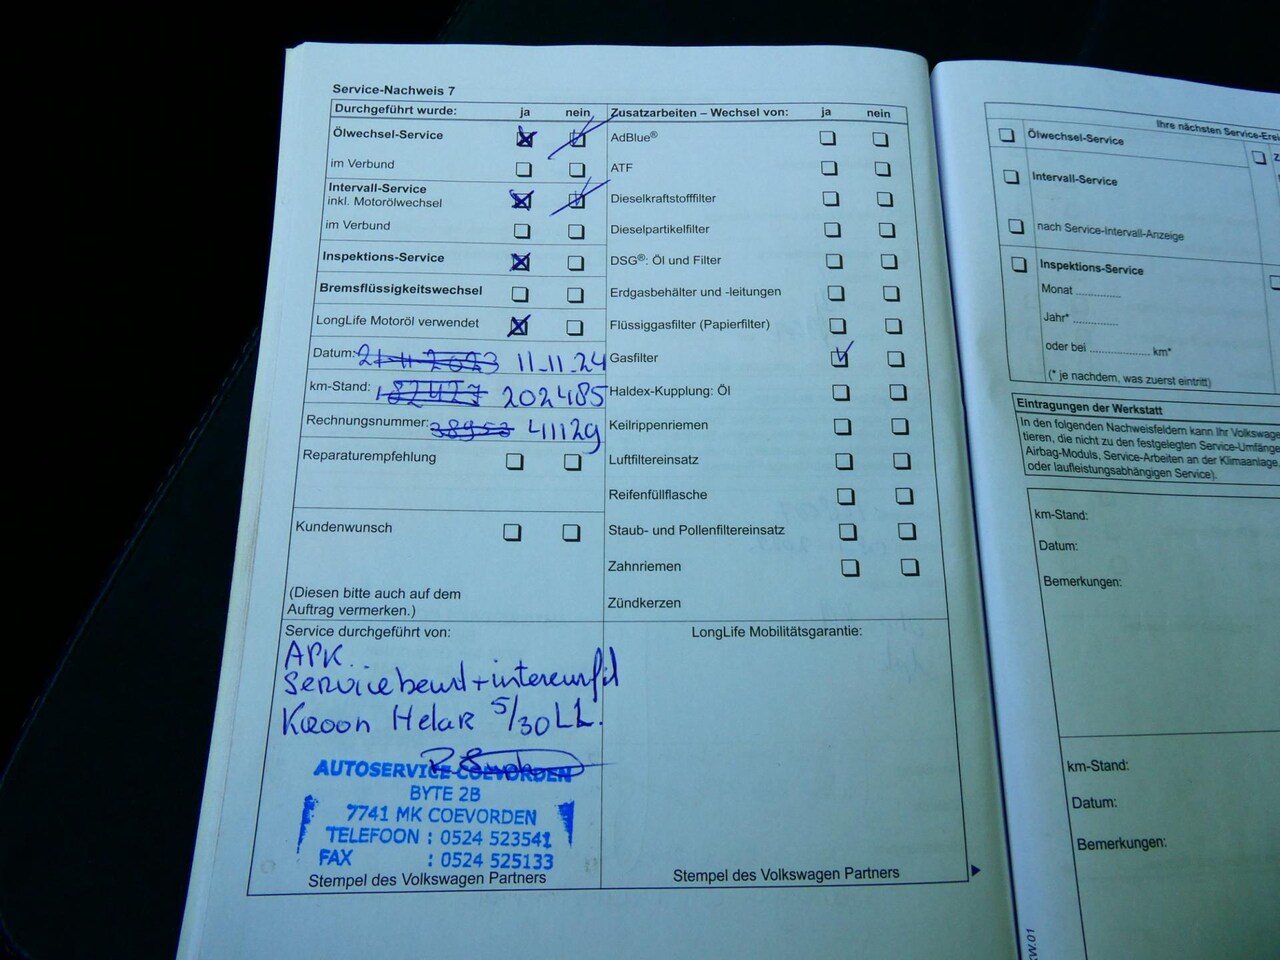 Service-Nachweis 7
Durchgeführt wurde: ja nein
Ölwechsel-Service
im Verbund
Intervall-Service
inkl. Motorölwechsel
im Verbund
Inspektions-Service
Bremsflüssigkeitswechsel
LongLife Motoröl verwendet
Datum: 21-11-2023 11-11-24
km-Stand: 182427 202485
Rechnungsnummer: 38953 41129
Reparaturempfehlung
Kundenwunsch
(Diesen bitte auch auf dem
Auftrag vermerken.)
Zusatzarbeiten – Wechsel von: ja nein
AdBlue®
ATF
Dieselkraftstofffilter
Dieselpartikelfilter
DSG®: Öl und Filter
Erdgasbehälter und -leitungen
Flüssiggasfilter (Papierfilter)
Gasfilter
Haldex-Kupplung: Öl
Keilrippenriemen
Luftfiltereinsatz
Reifenfüllflasche
Staub- und Pollenfiltereinsatz
Zahnriemen
Zündkerzen
Service durchgeführt von:
APK.
Servicebeurt + interieurfil
Kroon Helar 5/30 LL.
AUTOSERVICE COEVORDEN
BYTE 2B
7741 MK COEVORDEN
TELEFOON : 0524 523541
FAX : 0524 525133
Stempel des Volkswagen Partners
LongLife Mobilitätsgarantie:
Stempel des Volkswagen Partners
Ihre nächsten Service-Erei
Ölwechsel-Service
Z
Intervall-Service
nach Service-Intervall-Anzeige
Inspektions-Service
Monat ..............
Jahr* ..............
oder bei .................. km*
(* je nachdem, was zuerst eintritt)
Eintragungen der Werkstatt
In den folgenden Nachweisfeldern kann Ihr Volkswage
tieren, die nicht zu den festgelegten Service-Umfänge
Airbag-Moduls, Service-Arbeiten an der Klimaanlage
oder laufleistungsabhängigen Service).
km-Stand:
Datum:
Bemerkungen:
km-Stand:
Datum:
Bemerkungen: